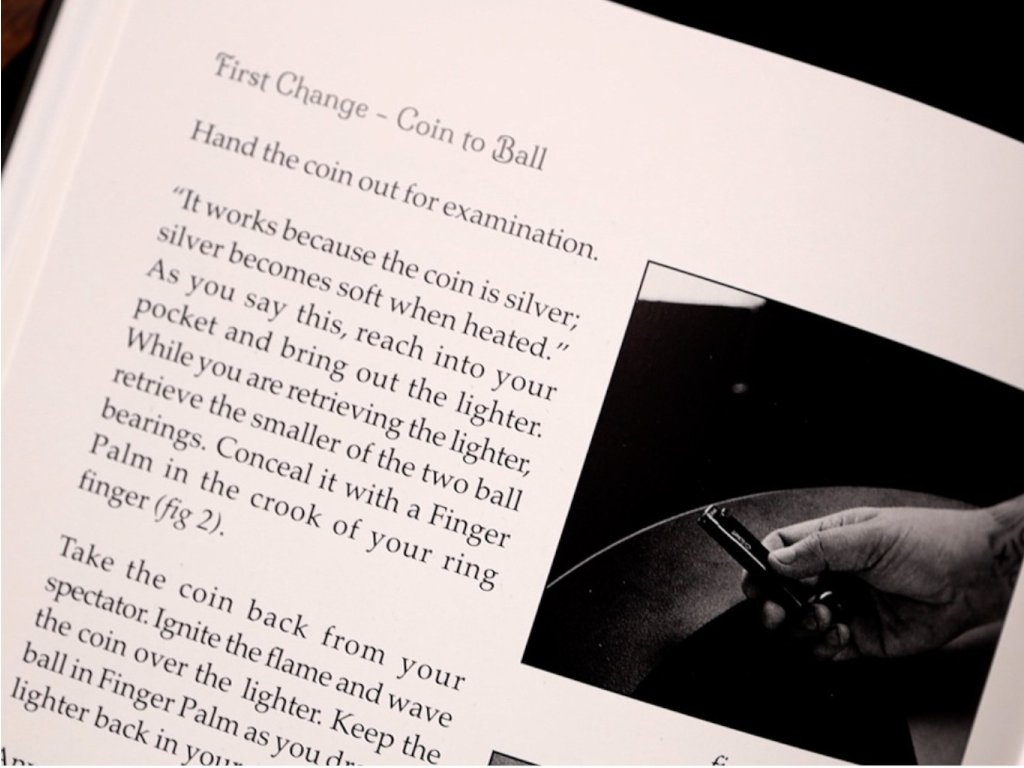 First Change - Coin to Ball
Hand the coin out for examination.
“It works because the coin is silver;
silver becomes soft when heated.”
As you say this, reach into your
pocket and bring out the lighter.
While you are retrieving the lighter,
retrieve the smaller of the two ball
bearings. Conceal it with a Finger
Palm in the crook of your ring
finger (fig 2).
Take the coin back from your
spectator. Ignite the flame and wave
the coin over the lighter. Keep the
ball in Finger Palm as you
lighter back in your